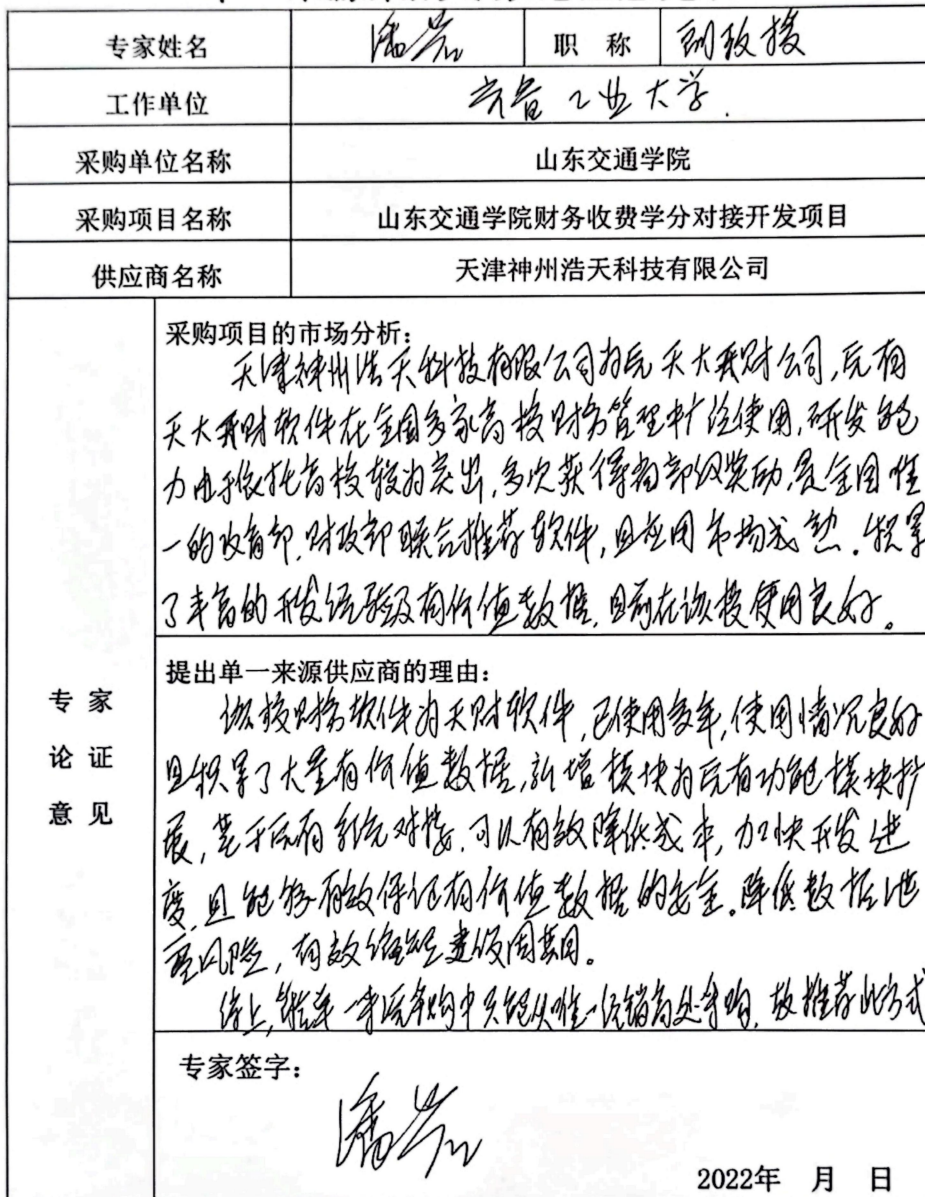 专家姓名 潘岩 职 称 副教授
工作单位 齐鲁工业大学.
采购单位名称 山东交通学院
采购项目名称 山东交通学院财务收费学分对接开发项目
供应商名称 天津神州浩天科技有限公司
专 家
论 证
意 见
采购项目的市场分析：
天津神州浩天科技有限公司为原天大天财公司,原有
天大天财软件在全国多家高校财务管理中广泛使用,研发能
力由于依托高校较为突出,多次获得省部级奖励,是全国唯
一的教育部、财政部联合推荐软件,且应用市场成熟。积累
了丰富的开发经验及有价值数据,目前在该校使用良好。
提出单一来源供应商的理由：
该校财务软件为天财软件,已使用多年,使用情况良好
且积累了大量有价值数据,新增模块为原有功能模块扩
展,基于原有系统对接,可以有效降低成本,加快开发进
度,且能够有效保证有价值数据的安全。降低数据泄
露风险,有效缩短建设周期。
综上,符合单一来源采购中只能从唯一经销商处采购,故推荐此方式
专家签字：
潘岩
2022年 月 日